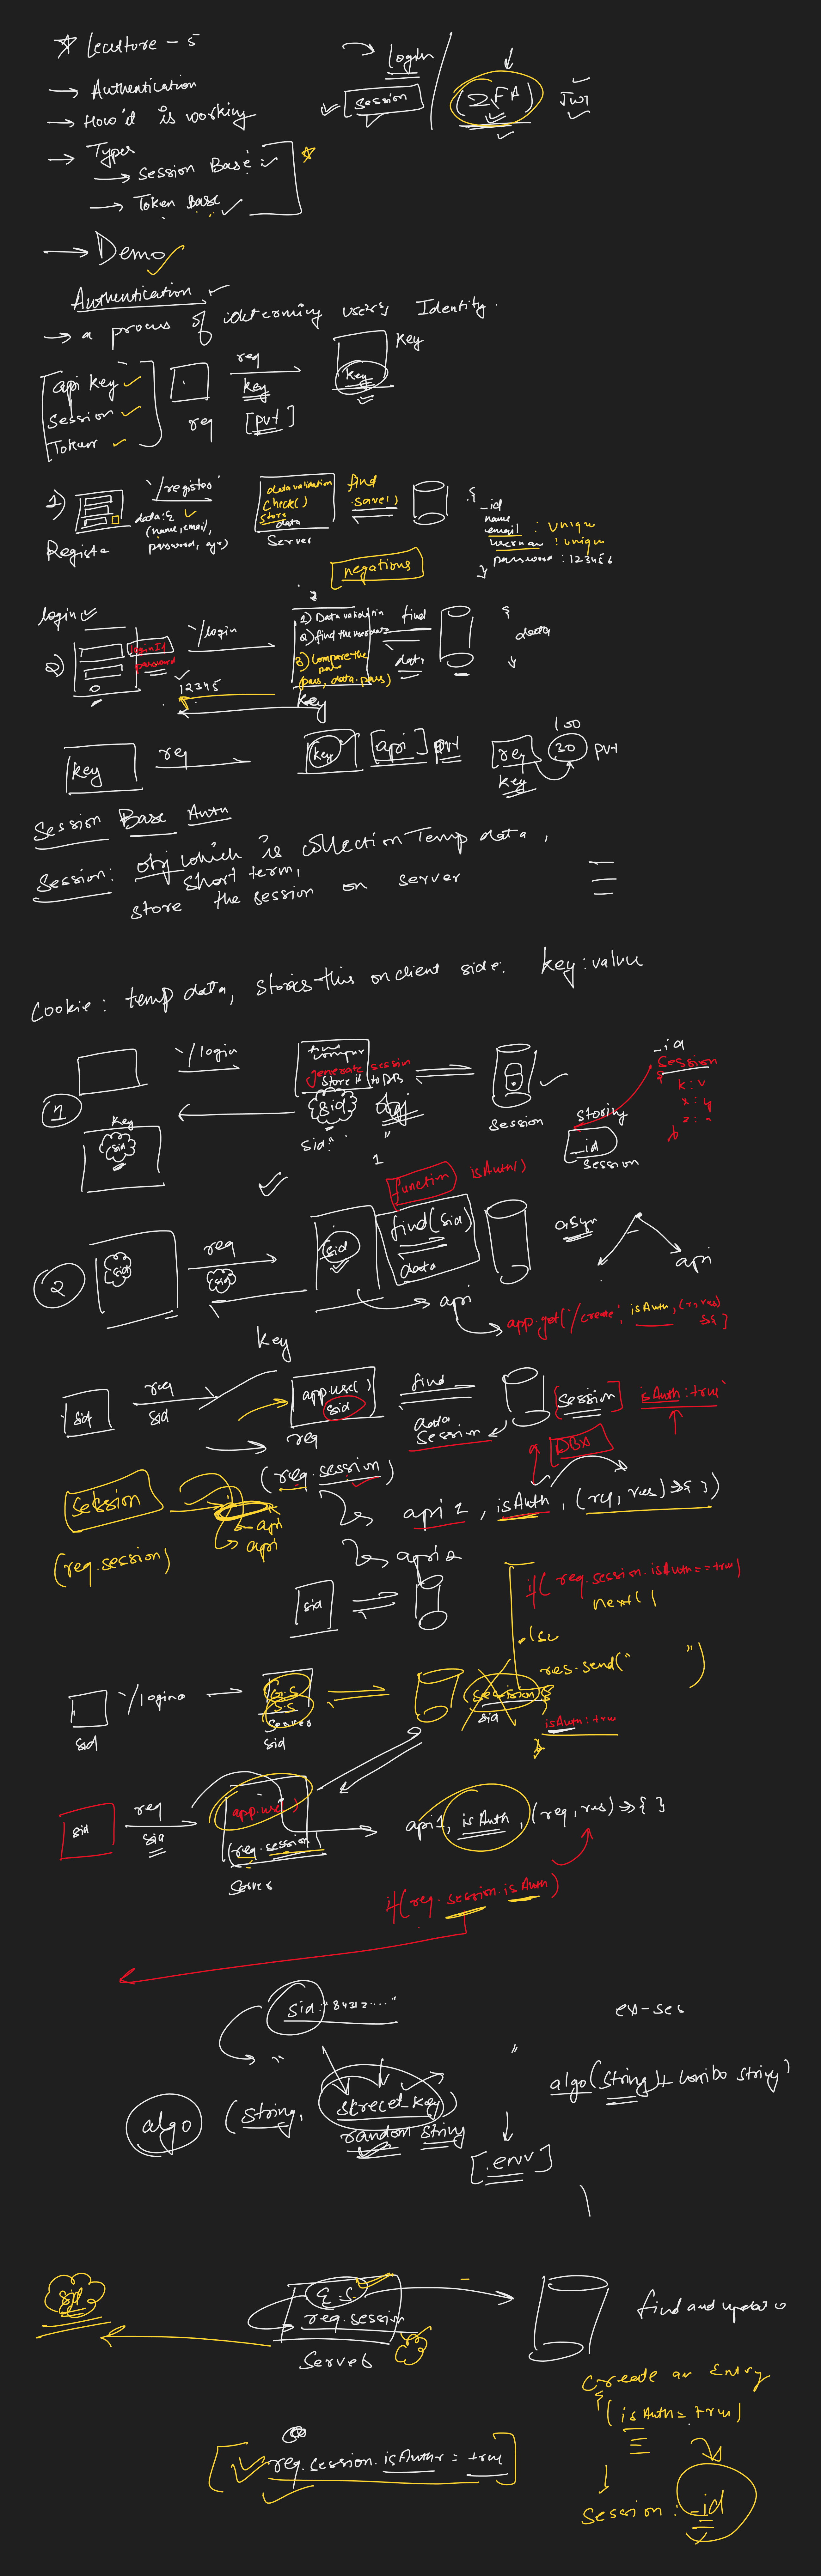 ☆ Lecuture - 5
→ Authentication
→ How it is working
→ Types
→ Session Base
→ Token Base
→ Demo
→ login
Session
(2FA)
JWT
Authentication
→ a process of determing users Identity.
api key
Session
Token
req
req
key
[pvt]
key
key
1)
Registe
"/register"
data:{
(name, email,
password, age)
data validation
check()
store
data
Server
find
.save()
{
_id
name
email : unique
username : unique
password : 123456
}
negations
login
2)
loginId
password
"/login
12345
1) Data validatin
2) find the user
3) Compare the
pass
(pass, data.pass)
find
data
{
data
key
key
req
key
[api] pvt
req
key
100
20
pvt
Session Base Auth
Session: obj which is collection Temp data,
short term,
store the session on server
Cookie: temp data, stores this on client side. key:value
1
"/login
compar
generate session
store it to DB
sid
obj
sid:" "
Key
sid
Session
storing
_id
session
_id
session
{
k:v
x:y
2
sid
req
sid
sid
function
isAuth()
find(sid)
data
async
api
api
app.get('/create', isAuth, (r, res)
key
sid
req
sid
app.use()
sid
req
(req.session)
find
data
session
[session]
isAuth: true
DBA
session
(req.session)
api
api
api 1, isAuth, (req, res) => { })
api 2
sid
if( req.session.isAuth == true)
next()
else
res.send(" ")
sid
"/login
Server
sid
session
sid
isAuth: true
sid
req
sid
app.use()
(req.session)
Server
api1, isAuth, (req, res) => { }
if(req.session.isAuth)
sid: "84312...."
ex-ses
algo (string, secret_key)
random string
[.env]
algo(string) + combo string
sid
E.S.
req.session
Server
find and update
Create an Entry
{
(isAuth = true)
session: _id
req.session.isAuth = true